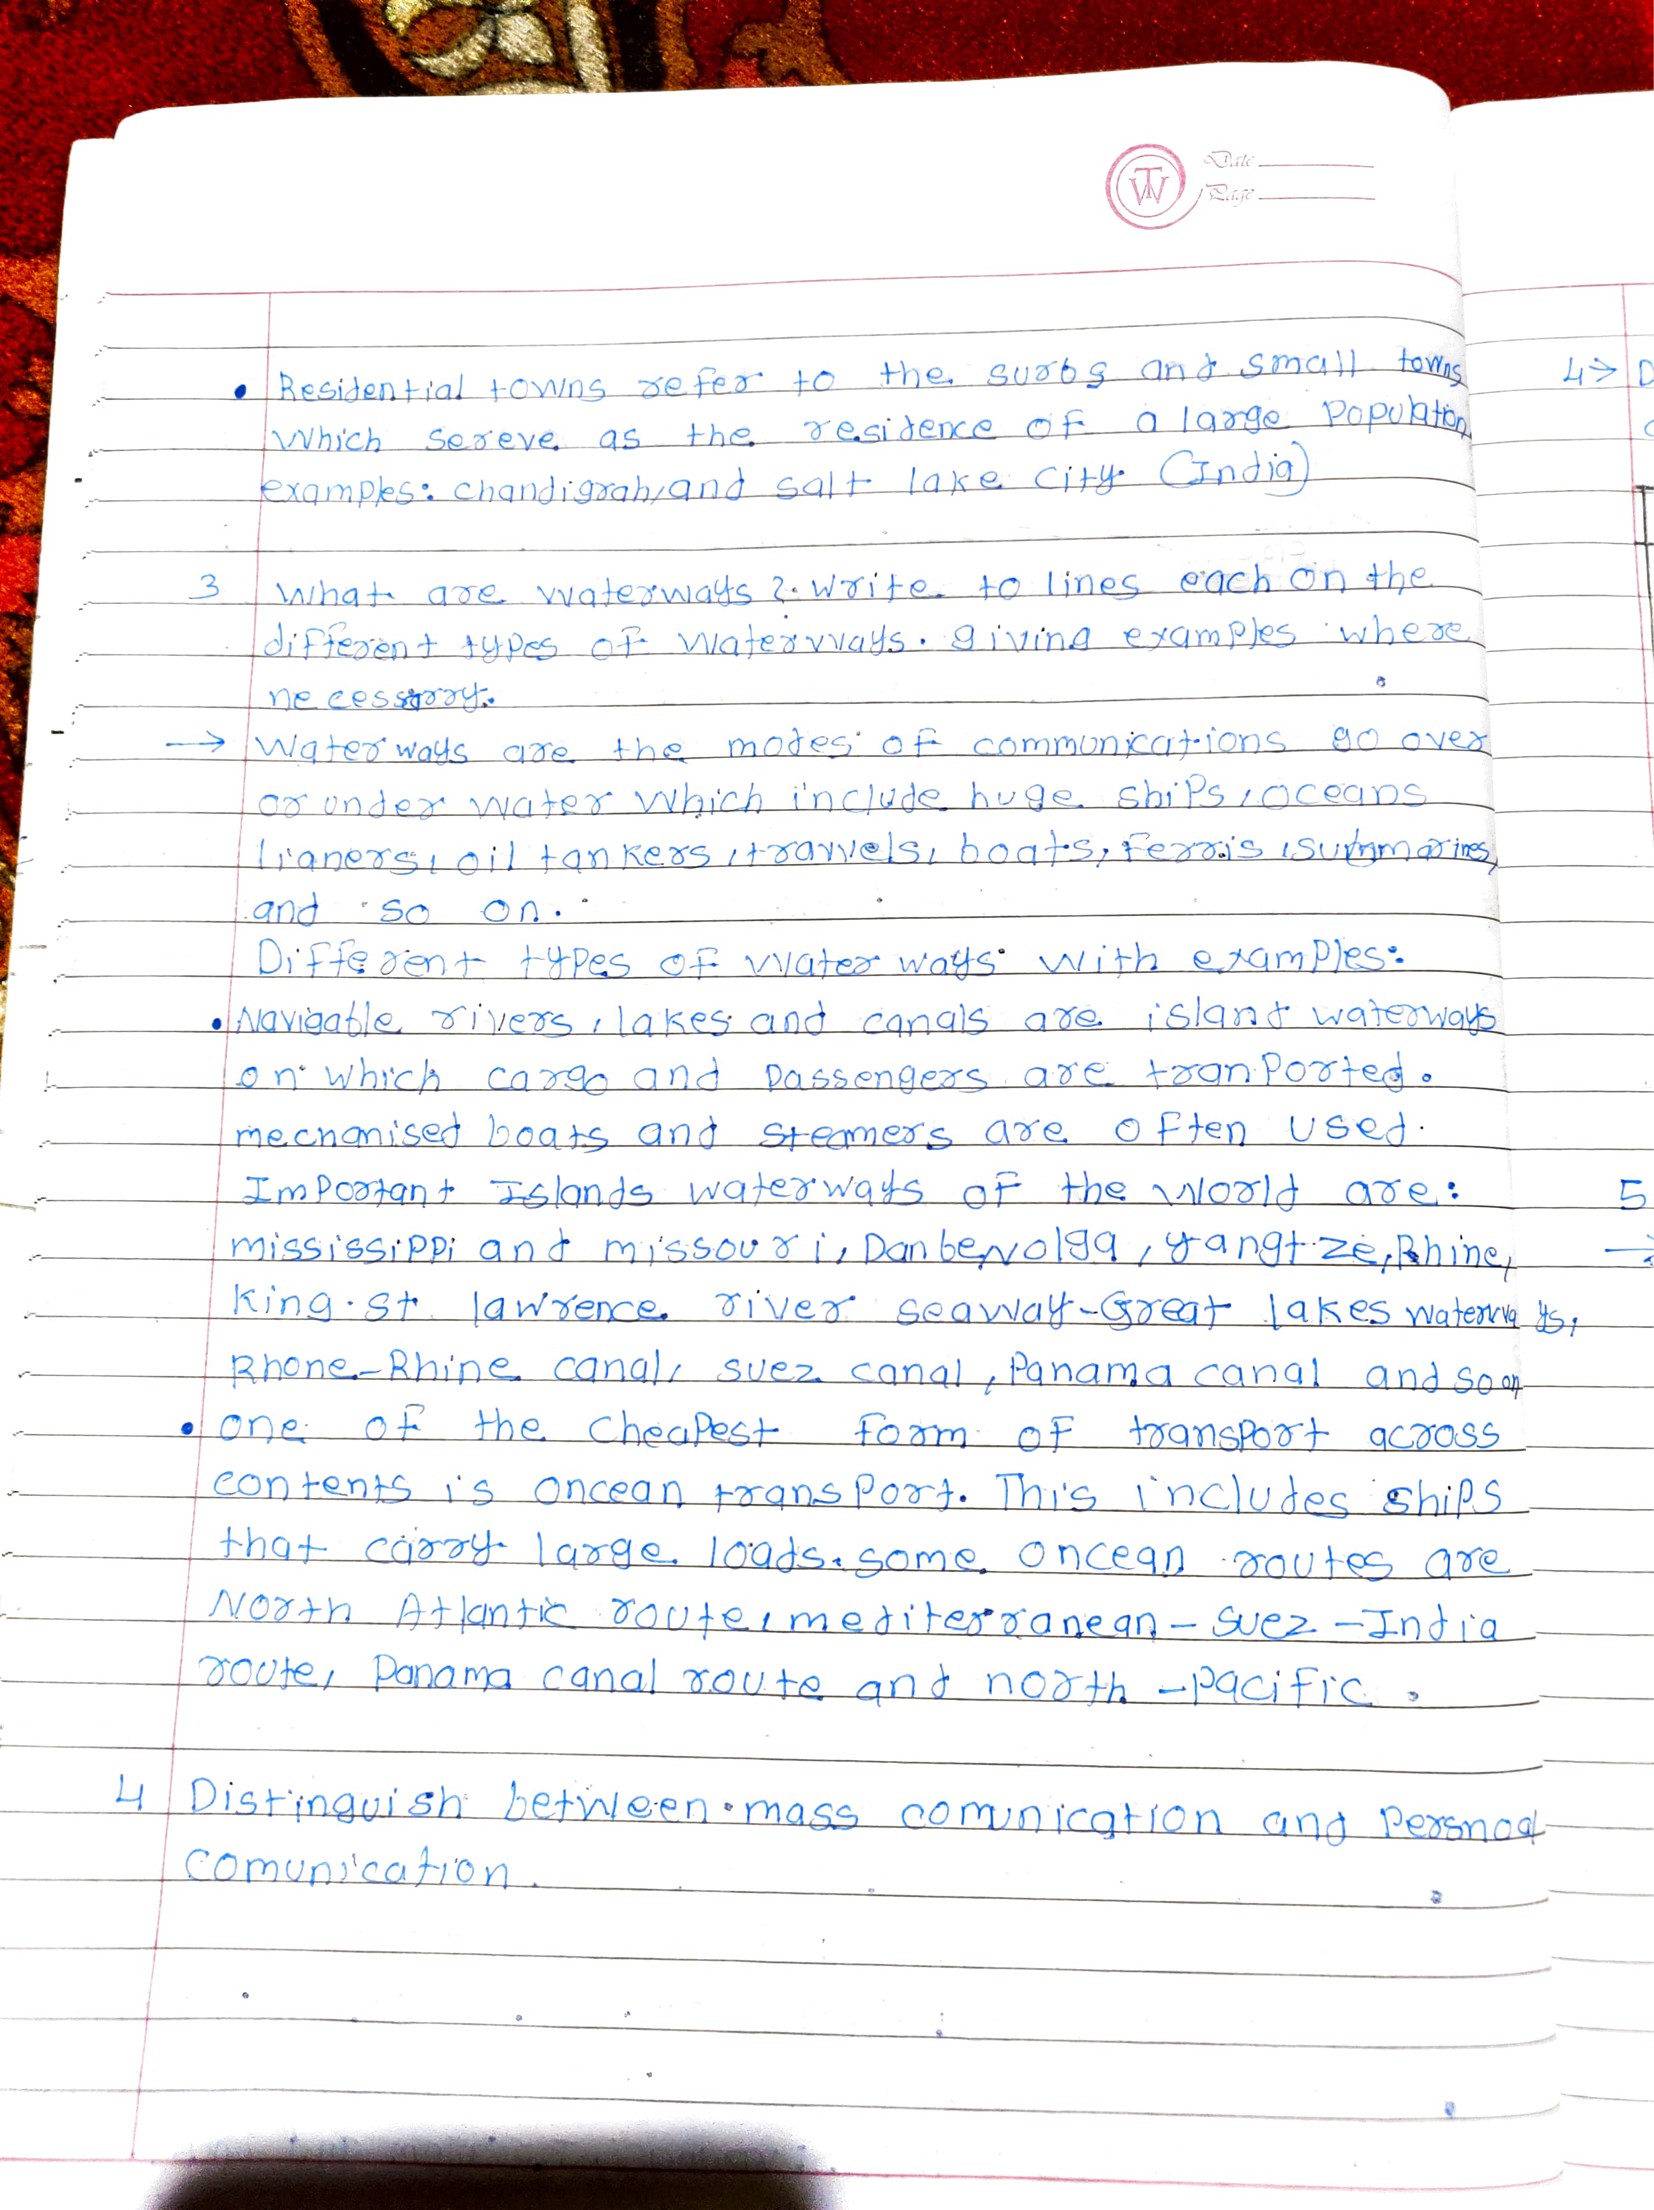 TW
Date
Page
• Residential towns refer to the surbs and small towns
which sereve as the residence of a large population
examples: chandigrah, and salt lake city (India)
3 What are waterways ?. write to lines each on the
different types of waterways. giving examples where
necessarry.
→ Waterways are the modes of communications go over
or under water which include huge ships, oceans
lianers, oil tankers, travvels, boats, ferris, summarines,
and so on.
Different types of water ways with examples:
• Navigable rivers, lakes and canals are island waterways
on which cargo and passengers are tranported.
mechanised boats and steamers are often used.
Important Islands waterways of the world are:
mississippi and missouri, Danbevolga, yangtze, Rhine,
king. st lawrence river seaway-Great lakes waterways,
Rhone-Rhine canal, suez canal, Panama canal and so on
• one of the cheapest form of transport across
contents is oncean transport. This includes ships
that carry large loads. some oncean routes are
North Atlantic route, mediterranean - suez - India
route, Panama canal route and north - pacific.
4 Distinguish between mass comunication and Persnoal
comunication.
4→ D
5
→